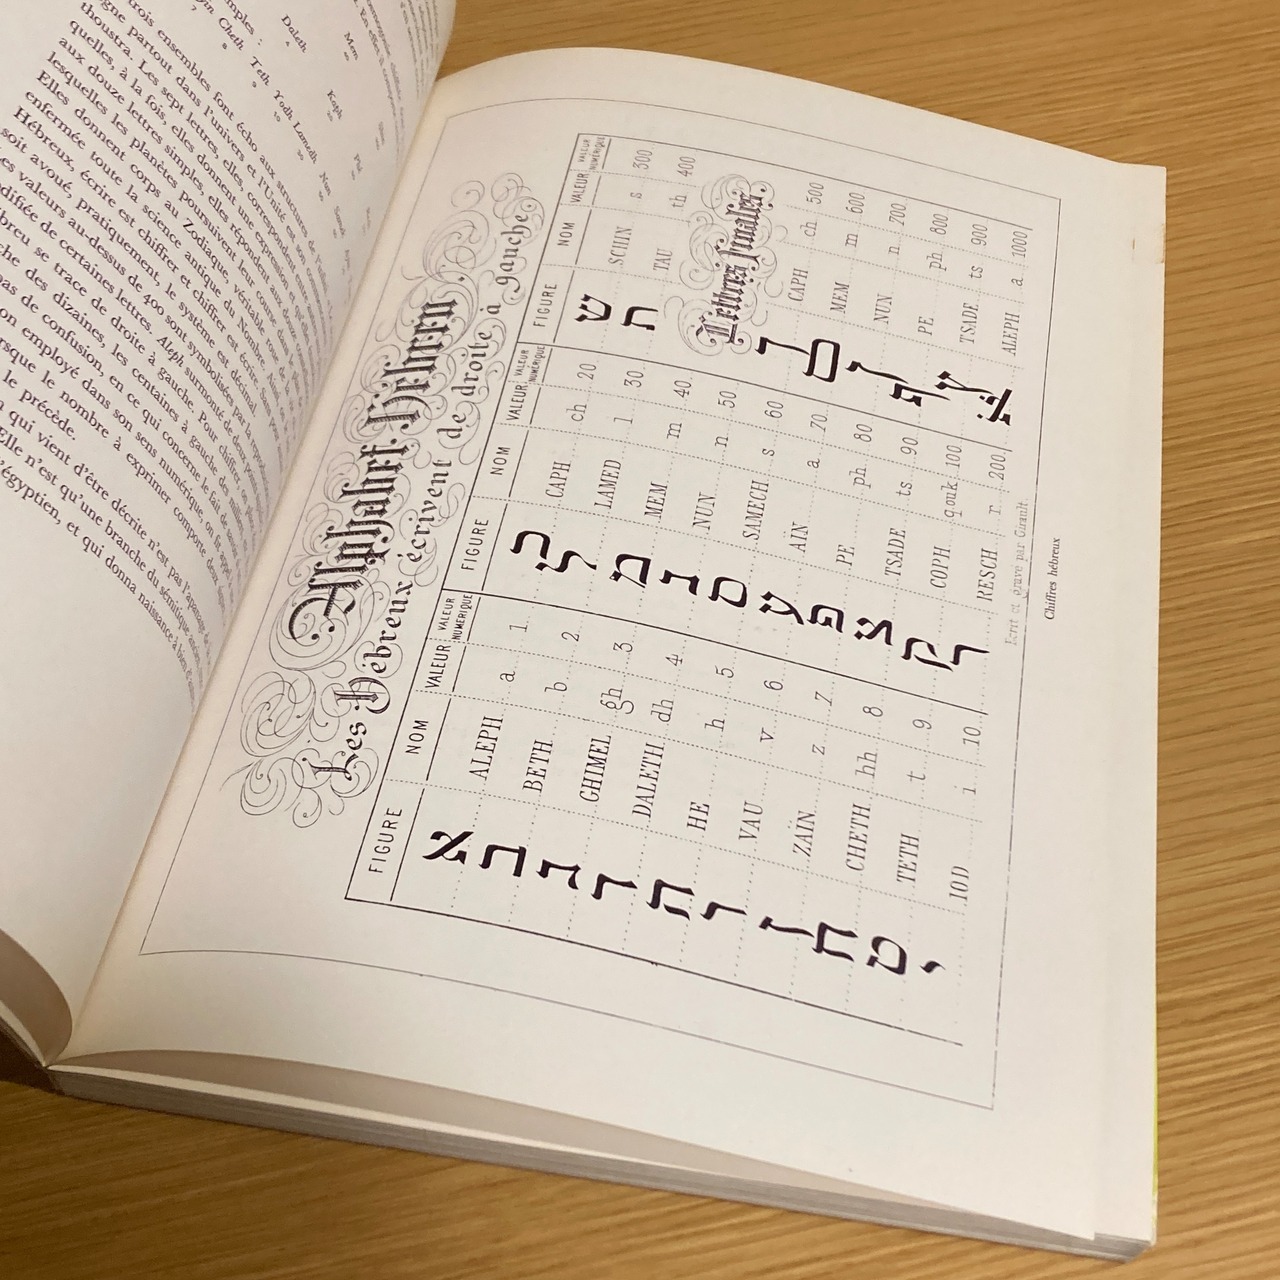 mples :
Daleth Mem Kaph
Cheth Teth Yodh Lamedh Nun
trois ensembles font écho aux structures de
gne partout dans l'univers et l'Unité est son
thoustra. Les sept lettres, elles, correspondent aux
quelles, à la fois, elles donnent une expression et
aux douze lettres simples, elles répondent aux
lesquelles les planètes poursuivent leur course
Elles donnent corps au Zodiaque, véritable roue
enfermée toute la science antique du Nombre.
Hébreux, écrire est chiffrer et chiffrer est écrire.
soit avoué, pratiquement, le système est décimal.
es valeurs au-dessus de 400 sont symbolisées par la
difiée de certaines lettres. Aleph surmonté de deux
breu se trace de droite à gauche. Pour chiffrer
che des dizaines, les centaines à gauche des
pas de confusion, en ce qui concerne le fait de
on employé dans son sens numérique, on fit appel
rsque le nombre à exprimer comporte deux
le précède.
n qui vient d'être décrite n'est pas l'apanage
Elle n'est qu'une branche du sémitique
égyptien, et qui donna naissance à bien
Alphabet Hébreu
Les Hébreux écrivent de droite à gauche
FIGURE NOM VALEUR VALEUR NUMÉRIQUE
א ALEPH a 1
ב BETH b 2
ג GHIMEL gh 3
ד DALETH dh 4
ה HE h 5
ו VAU v 6
ז ZAÏN z 7
ח CHETH hh 8
ט TETH t 9
י IOD i 10
FIGURE NOM VALEUR VALEUR NUMÉRIQUE
כ CAPH ch 20
ל LAMED l 30
מ MEM m 40
נ NUN n 50
ס SAMECH s 60
ע AÏN a 70
פ PE ph 80
צ TSADE ts 90
ק COPH q ou k 100
ר RESCH r 200
FIGURE NOM VALEUR VALEUR NUMÉRIQUE
ש SCHIN s 300
ת TAU th 400
Lettres finales
ך CAPH ch 500
ם MEM m 600
ן NUN n 700
ף PE ph 800
ץ TSADE ts 900
א ALEPH a 1000
Écrit et gravé par Girault
Chiffres hébreux